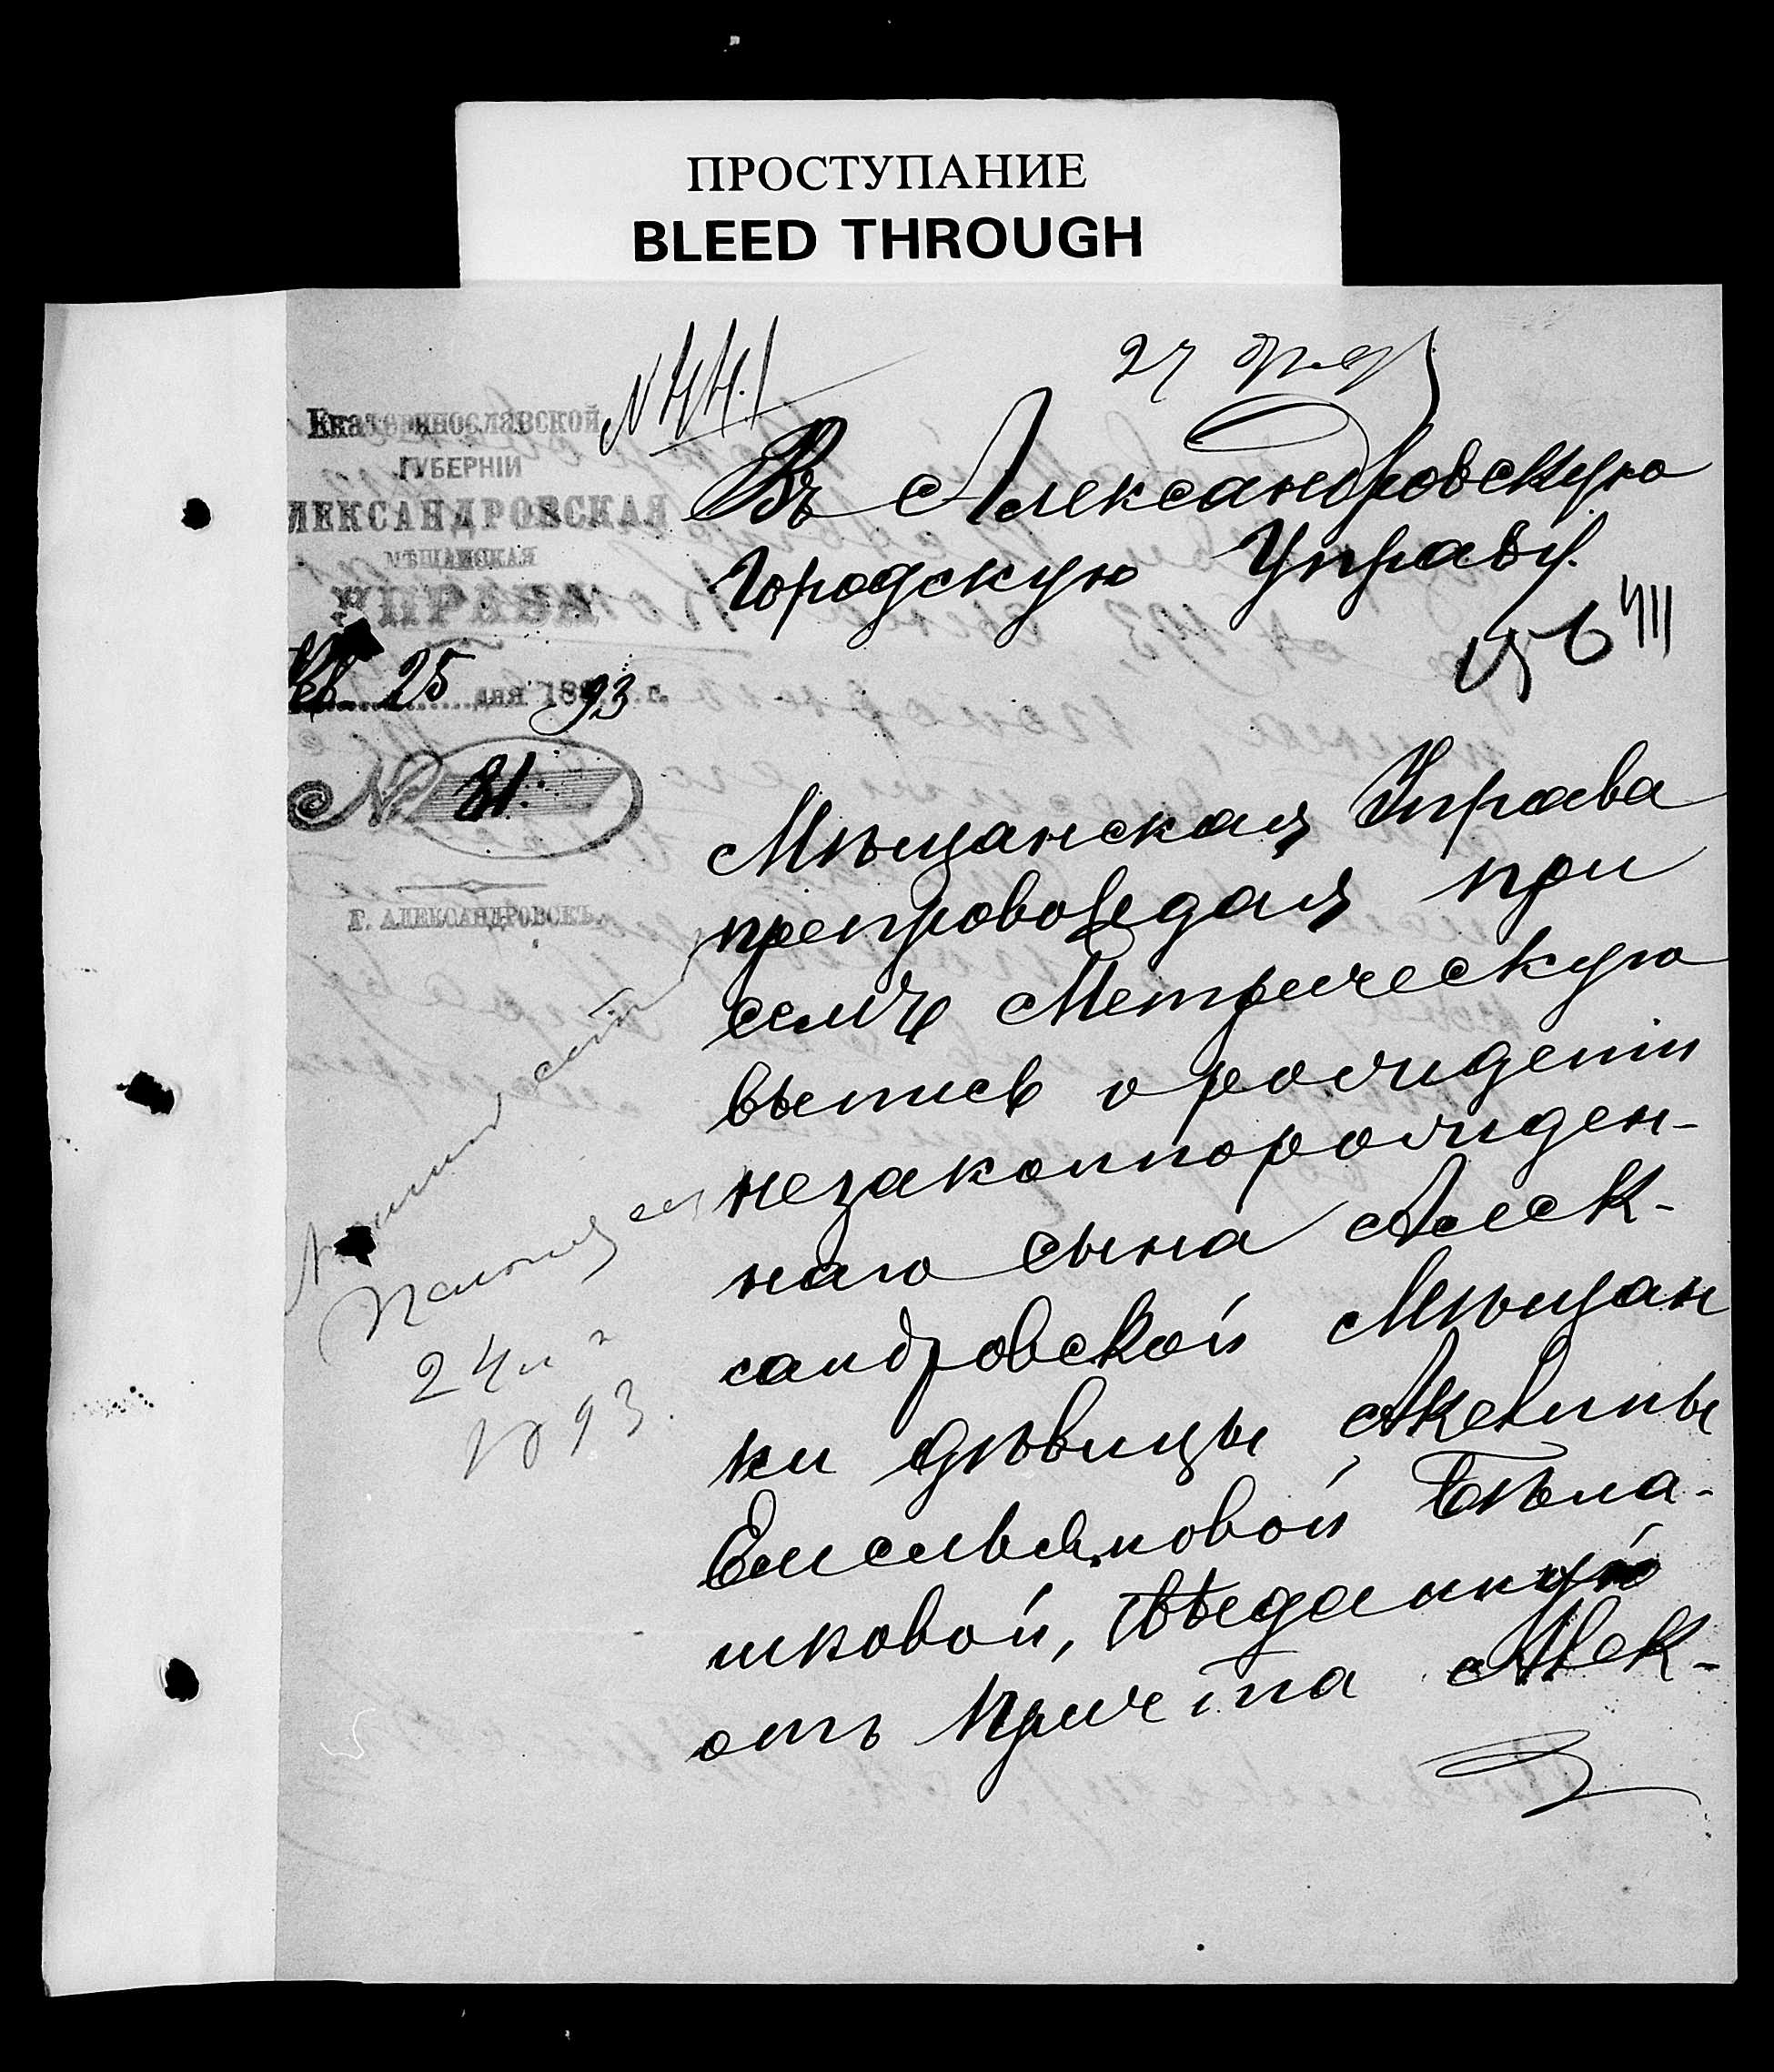 ПРОСТУПАНИЕ
BLEED THROUGH
27 февр
Екатеринославской
ГУБЕРНІИ
ЛЕКСАНДРОВСКАЯ
МѢЩАНСКАЯ
УПРАВА
Фев. 25 дня 1893 г.
№ 81.
Г. АЛЕКСАНДРОВСКЪ.
Въ Александровскую
Городскую Управу.
Мѣщанская Управа
препровождая при
семъ Метрическую
выпись о рожденіи
незаконнорожден-
наго сына Алек-
сандровской Мѣщан
ки дѣвицы Акелины
Емельяновой Бѣла-
шковой, выданную
отъ Причта Алек-
1893.